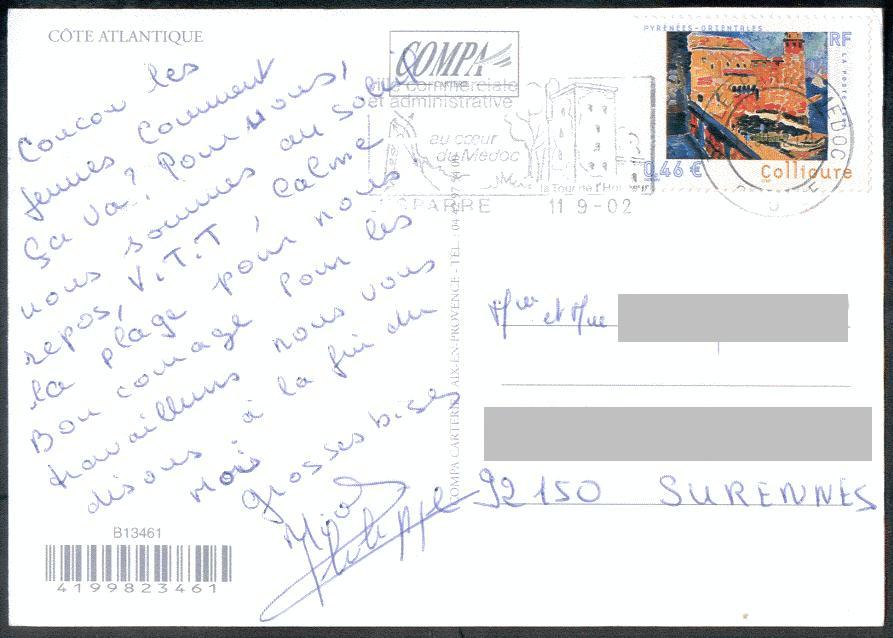 CÔTE ATLANTIQUE
Coucou les
jeunes comment
ça va? Pour nous,
nous sommes au soleil
repos, V.T.T, calme
la plage pour nous.
Bon courage pour les
travailleurs nous vous
disons à la fin du
mois
grosses bises
Philippe
B13461
4199823461
COMPA
ville commerciale
et administrative
au cœur
du Médoc
la Tour de l'Honneur
LESPARRE 11 9-02
MEDOC
PYRÉNÉES-ORIENTALES
RF
LA POSTE
0,46 €
Collioure
COMPA CARTERIE AIX-EN-PROVENCE - TEL. : 04
Mr et Mme
92150 SURENNES